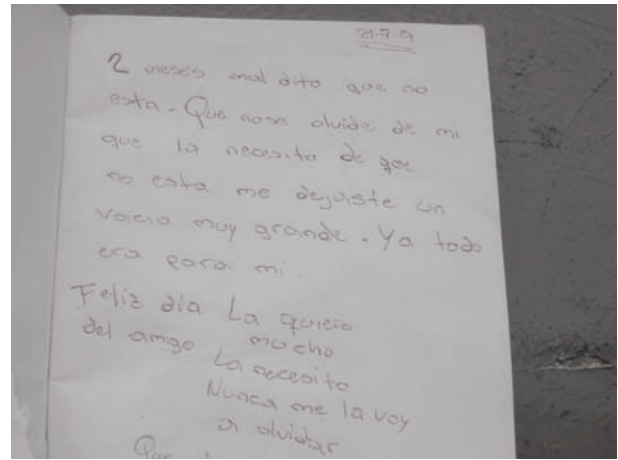 21-7-19
2 meses mal dito que no
esta - Que nose olvide de mi
que la necesito de que
no esta me dejaiste un
vacio muy grande. Ya todo
era para mi
Feliz dia La quiero
del amigo mucho
La necesito
Nunca me la voy
a olvidar
Que